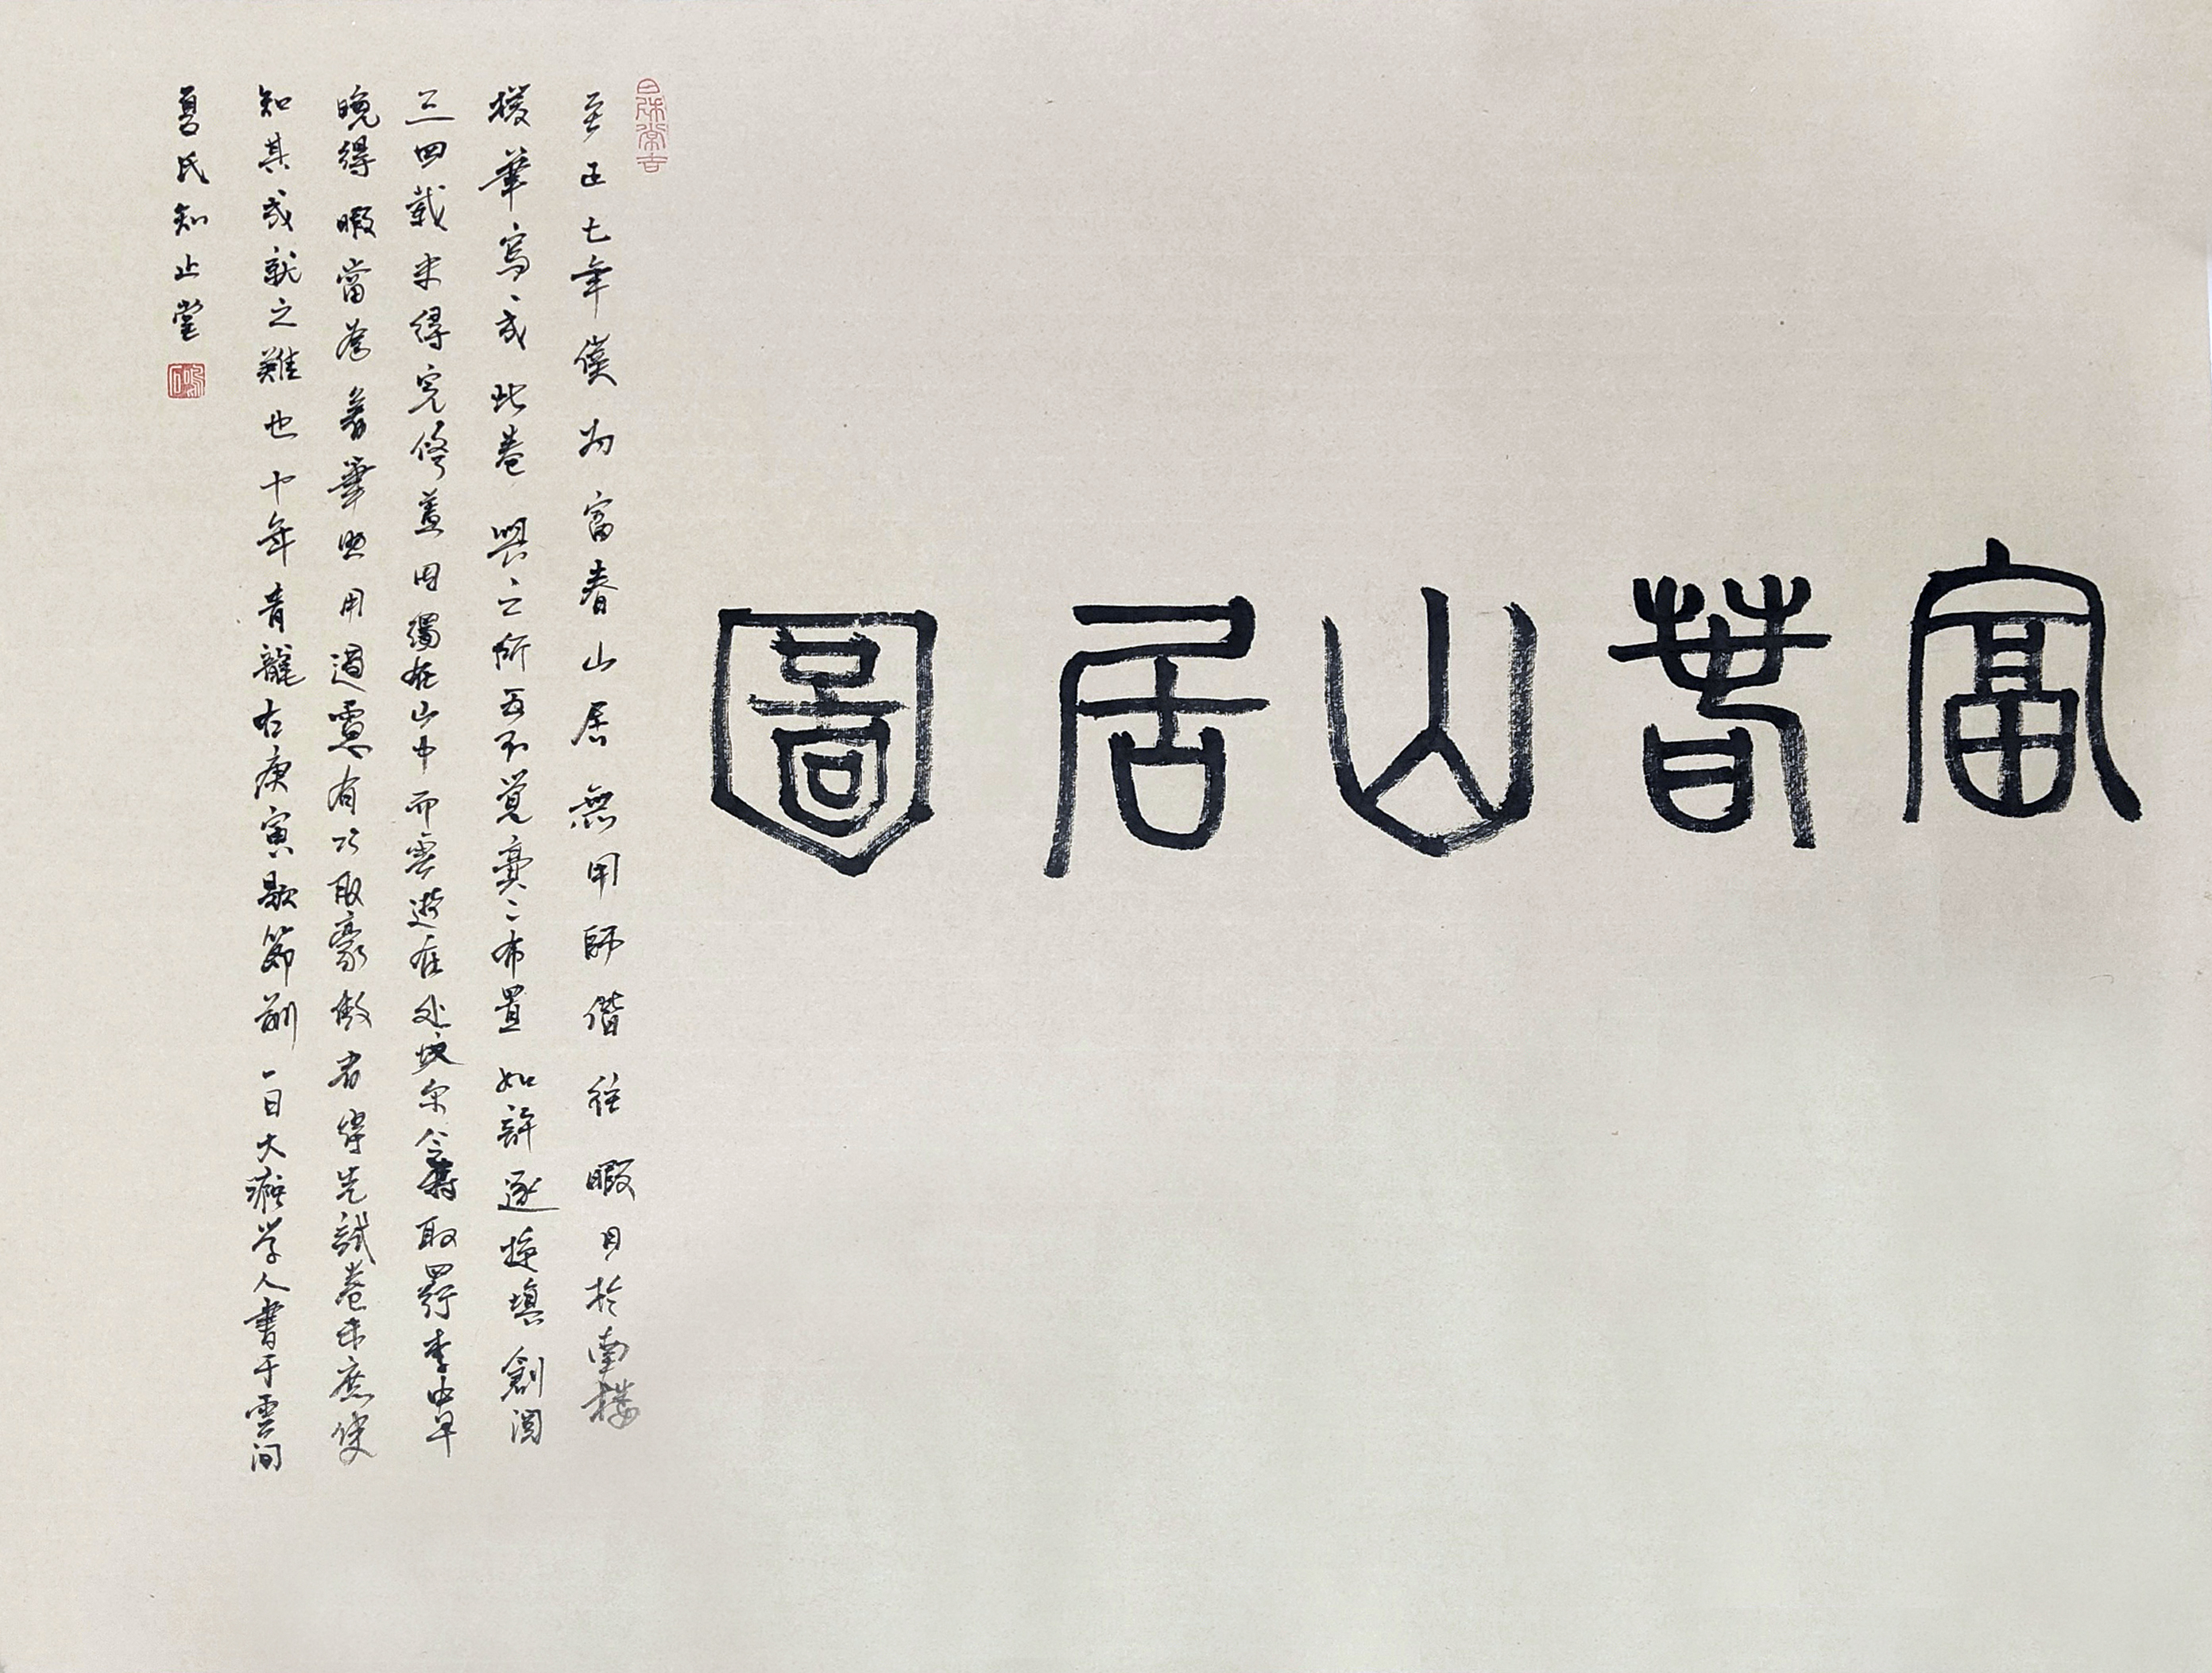 富春山居圖
至正七年僕為富春山居無用師偕往暇日於南樓
援筆寫成此卷興之所至不覺亹〻布置如許逐旋填劄閱
三四載未得完俻蓋因留在山中而雲遊在外故尔今特取回行李中早
晚得暇當為着筆無用過慮有巧取豪敚者俾先識卷末庶使
知其成就之難也十年青龍在庚寅歜節前一日大癡学人書于雲间
夏氏知止堂